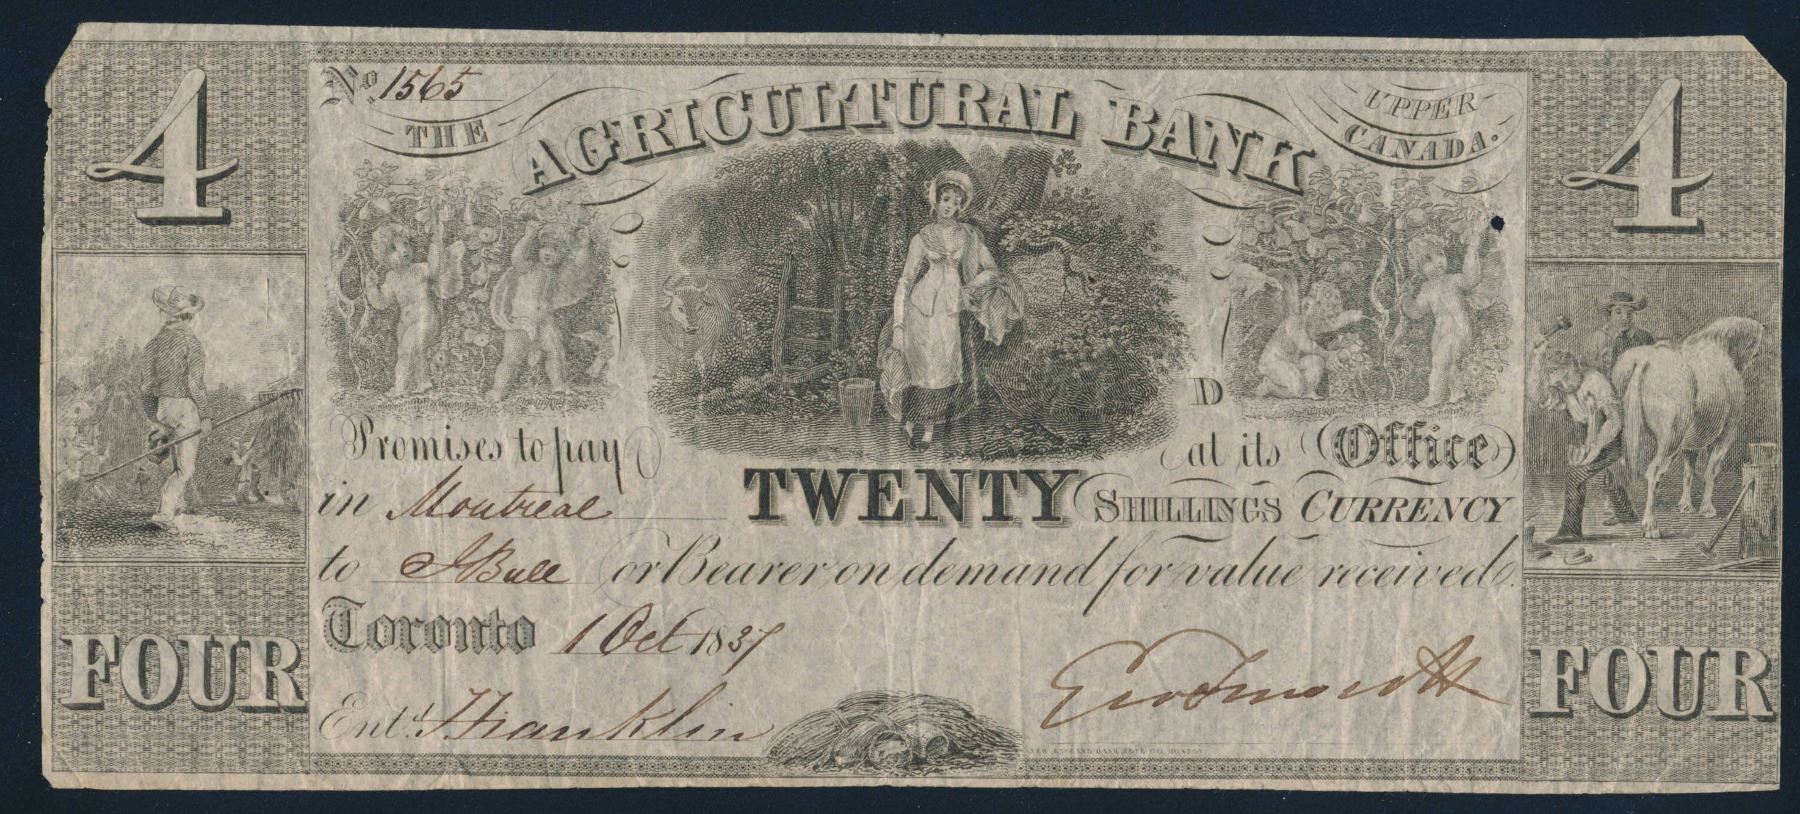 4
No. 1565
THE AGRICULTURAL BANK
UPPER CANADA.
4
D
Promises to pay at its Office
in Montreal TWENTY SHILLINGS CURRENCY
to J Bull or Bearer on demand for value received.
Toronto 1 Oct 1837
Entd. Franklin
FOUR
FOUR
NEW ENGLAND BANK NOTE CO. BOSTON